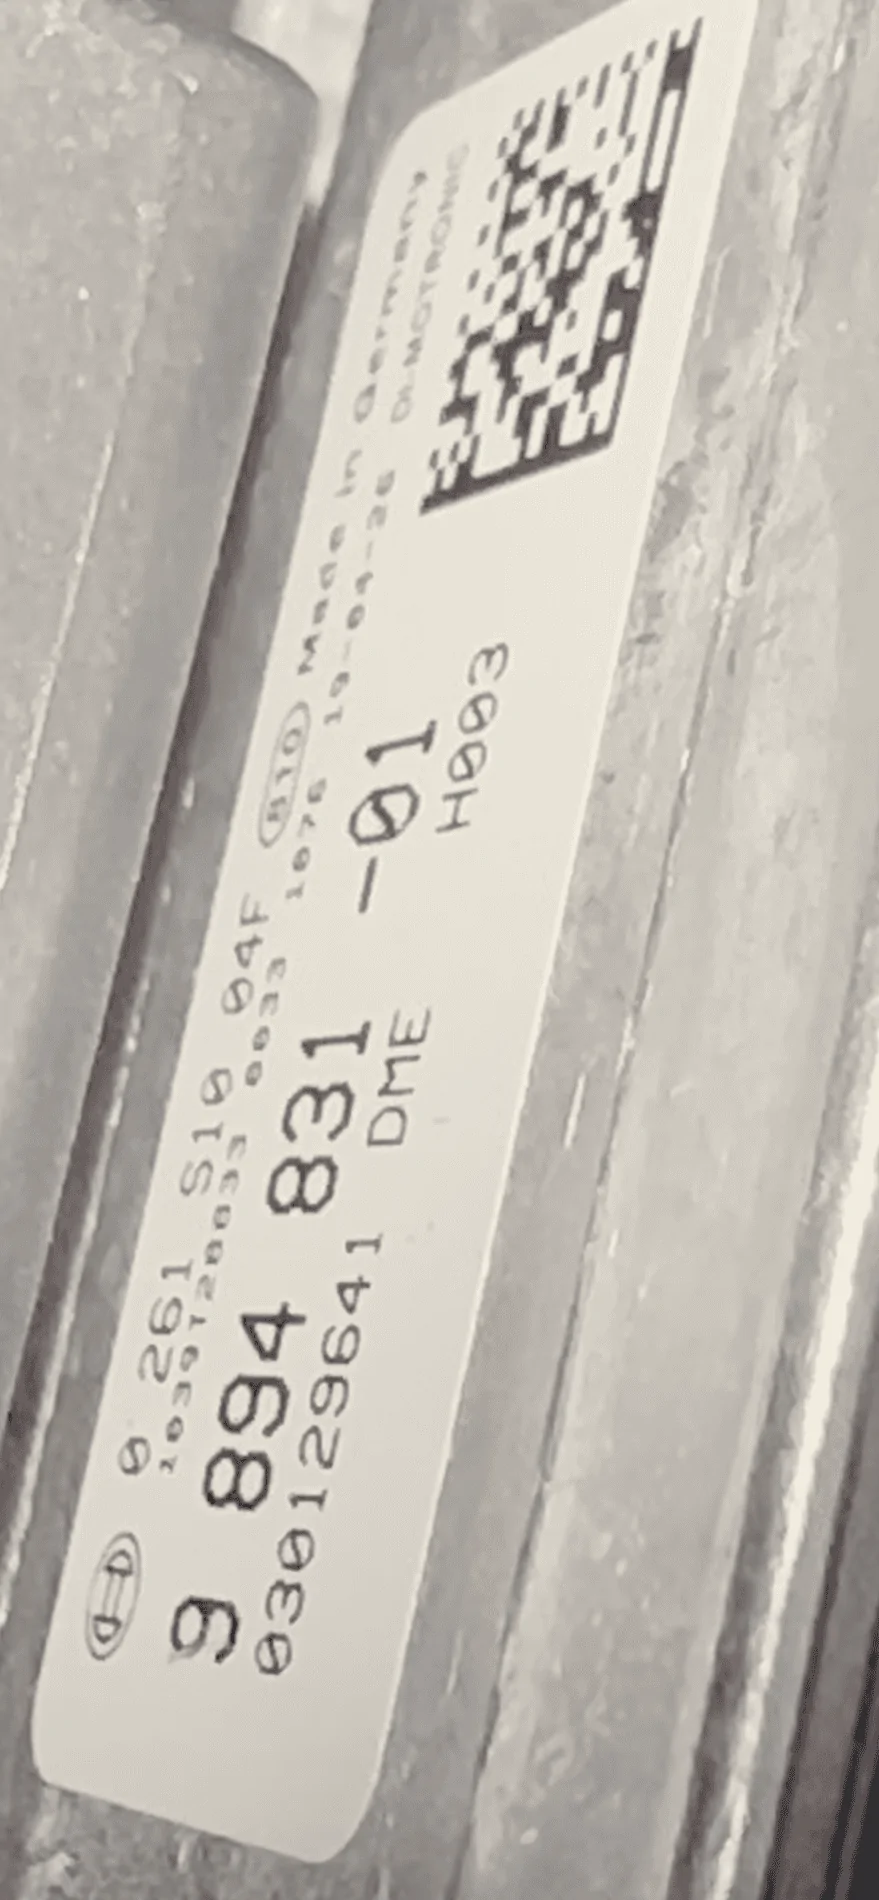 0 261 S10 04F 810 Made in Germany
1039T20033 0033 1076 19-04-26 DI-MOTRONIC
9 894 831 -01
030129641 DME H003